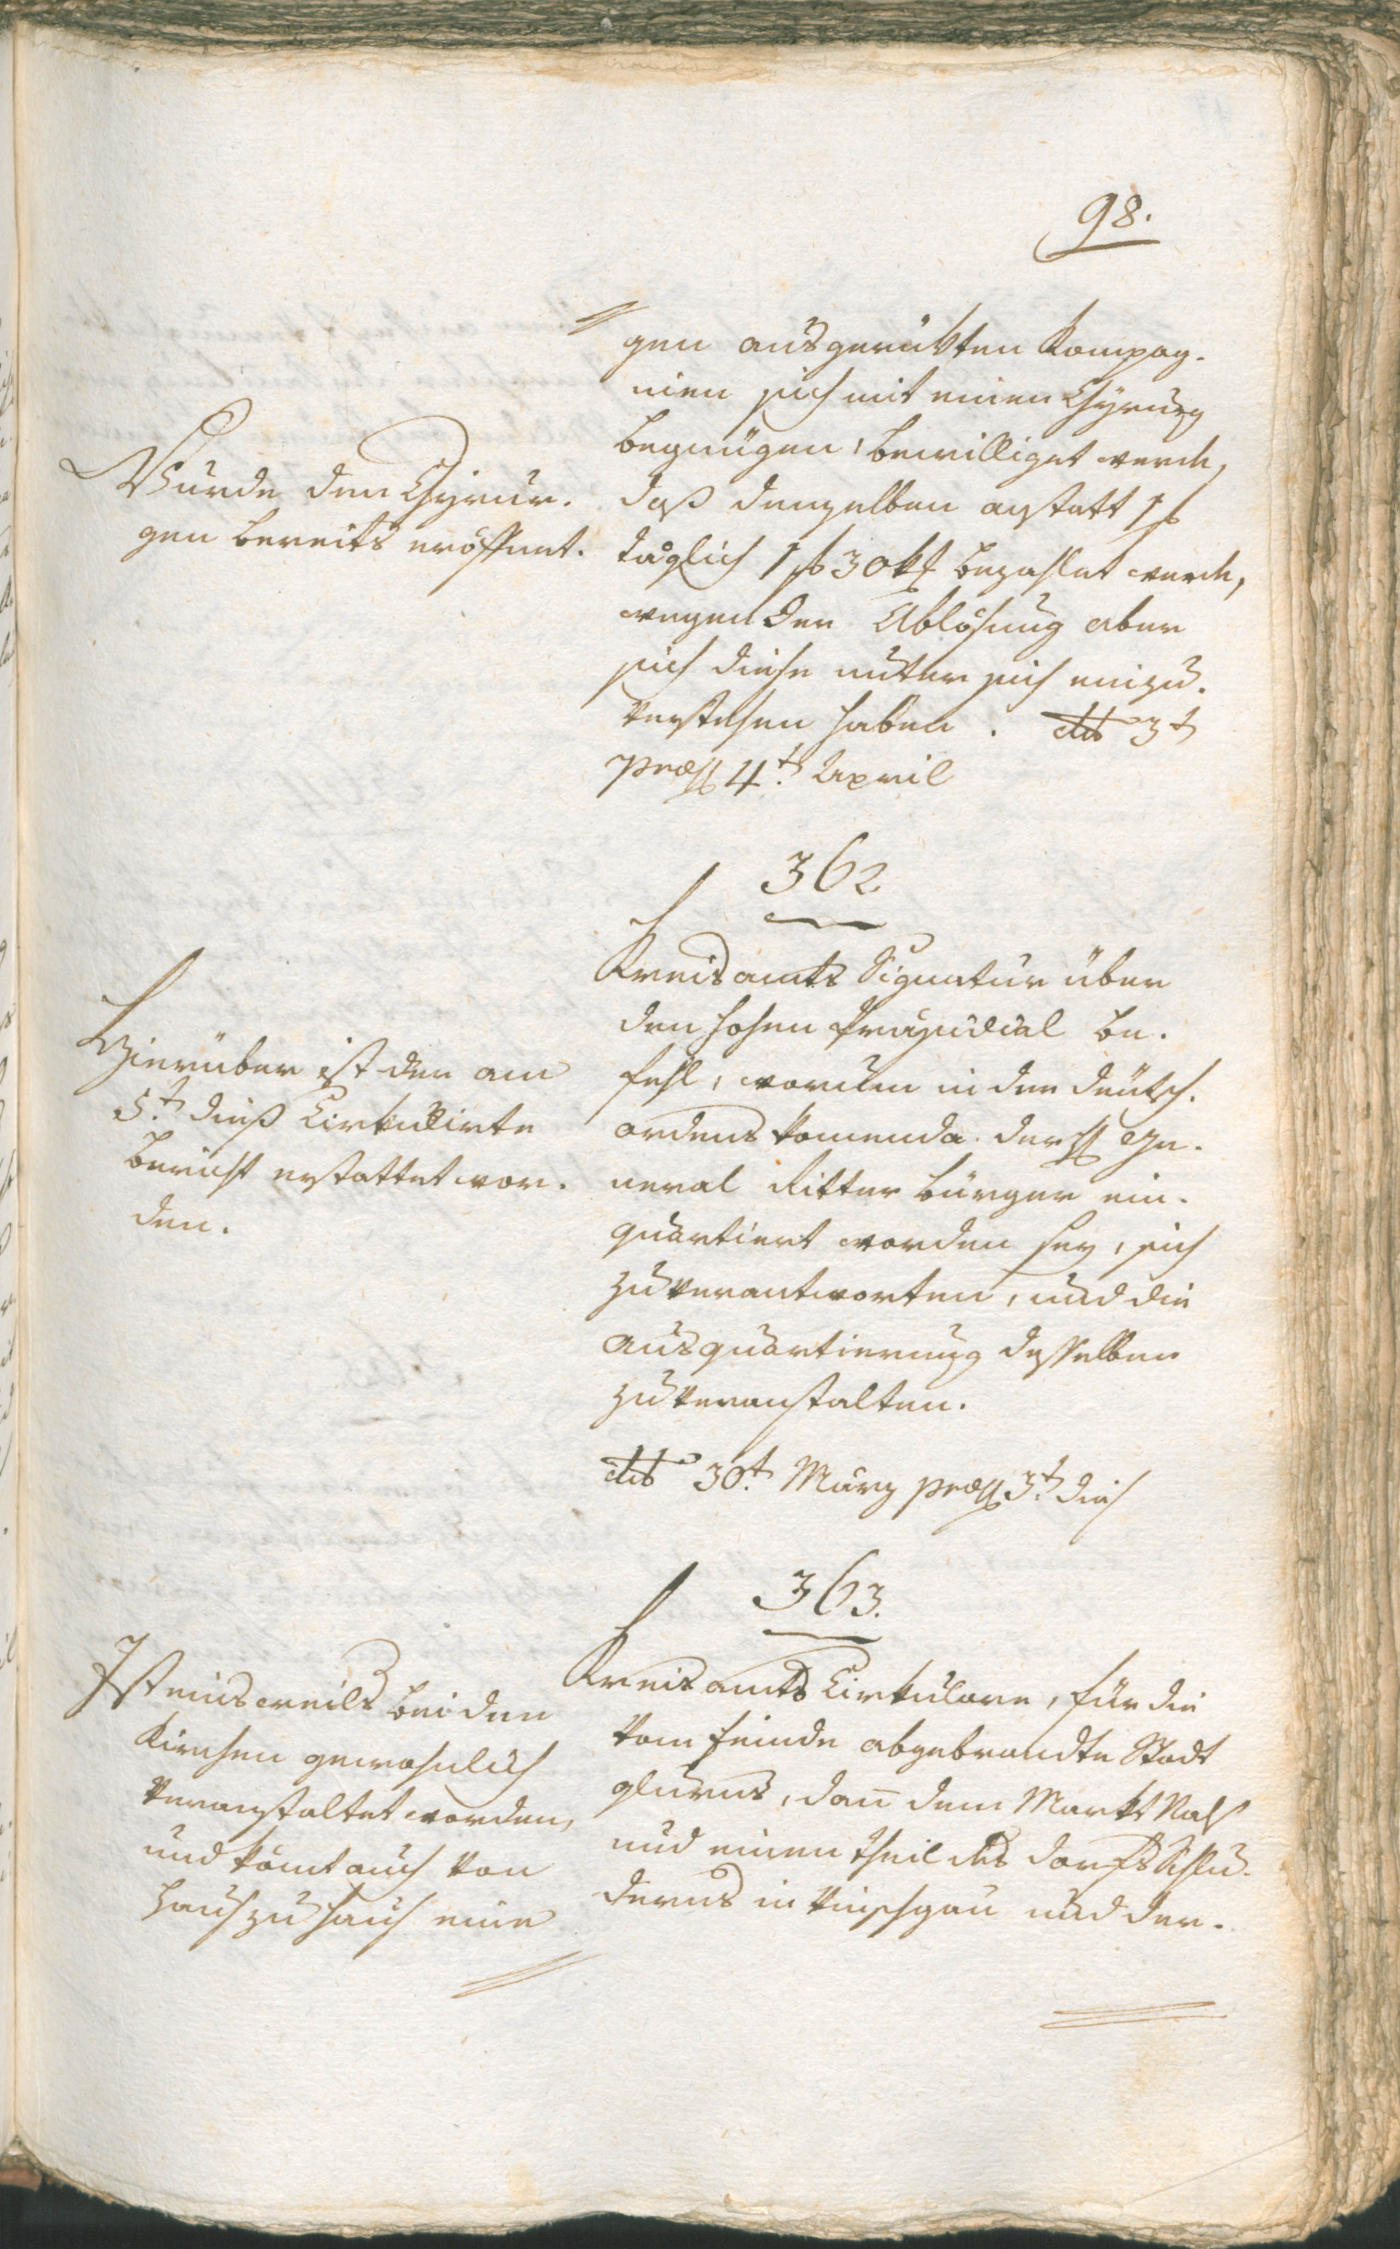 98.
gen ausgerükten Kompag-
nien sich mit einen Chyrurg
begnügen, bewilliget werde,
daß demselben anstatt 1 f
täglich 1 f 30 kr bezahlet werde,
wegen der Ablösung aber
sich diese unter sich einzu-
verstehen haben. dto 3t
Præs 4t April
Wurde den Chyrur-
gen bereits eröffnet.
362
Kreisamts Signatur über
den hohen Präsidial be-
fehl, warum in der deutsch-
ordens Komenda der H Ge-
neral Ritter Bürger ein-
quartiert worden sey, sich
zu verantworten, und die
ausquartierung desselben
zu veranstalten.
dto 30t März præs 3t dies
Hierüber ist der am
5t. dieß Cirkulirte
Bericht erstattet wor-
den.
363.
Kreisamts Cirkulare, für die
vom Feinde abgebrandte Stadt
Glurns, dan̄ dem Markt Mals
und einen Theil des Dorfs Schlu-
derns in Vinschgau und der-
Ist einsweils bei den
Kirchen gewohnlich
veranstaltet worden,
und kömt auch von
Haus zu Haus eine